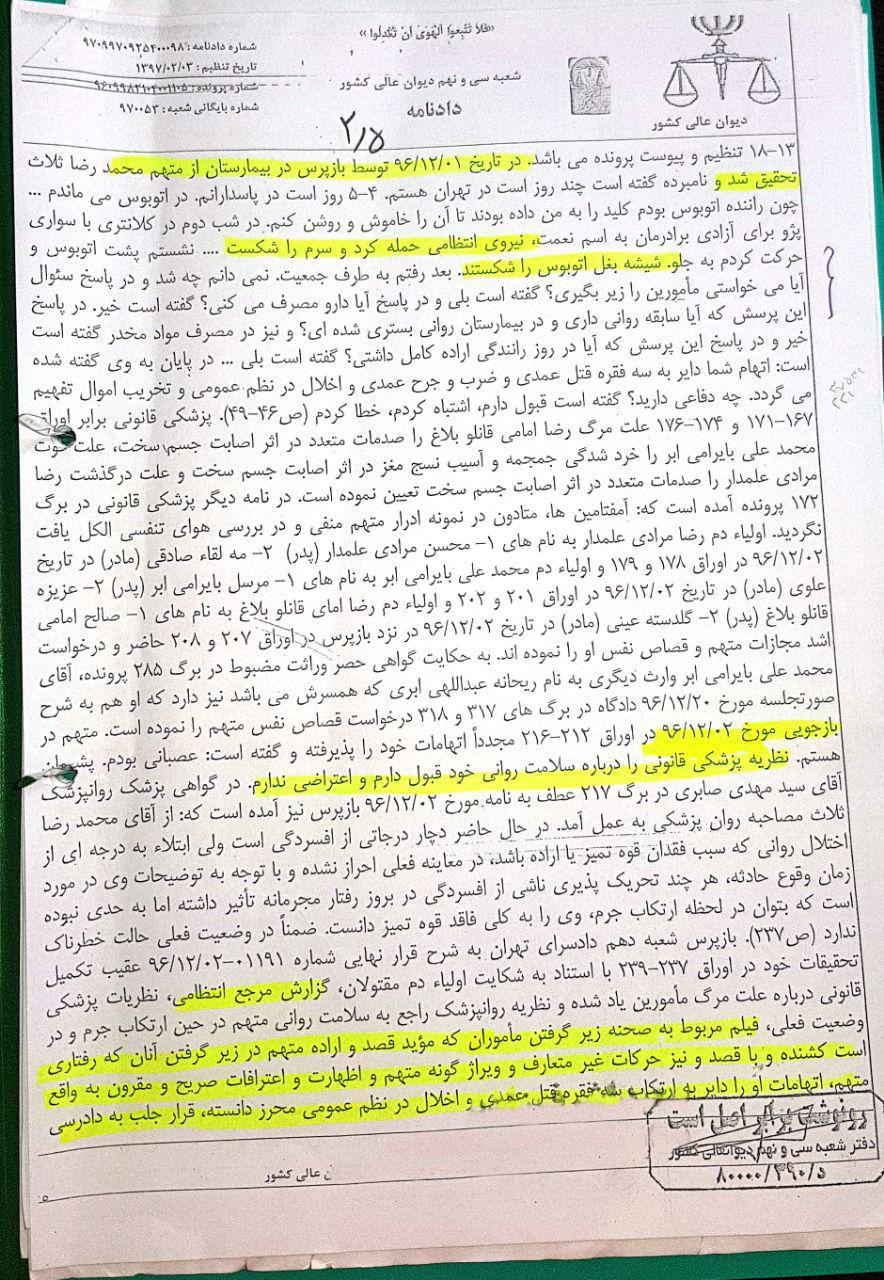 «فَلا تَتَّبِعوا الْهَوىٰ اَنْ تَعْدِلوا»
شماره دادنامه : ۹۷۰۹۹۷۰۹۲۵۴۰۰۰۹۸
تاریخ تنظیم : ۱۳۹۷/۰۲/۰۳
شماره پرونده :
شماره بایگانی شعبه : ۹۷۰۰۵۳
شعبه سی و نهم دیوان عالی کشور
دادنامه
دیوان عالی کشور
۱۳-۱۸ تنظیم و پیوست پرونده می باشد. در تاریخ ۹۶/۱۲/۰۱ توسط بازپرس در بیمارستان از متهم محمد رضا ثلاث
تحقیق شد و نامبرده گفته است چند روز است در تهران هستم. ۴-۵ روز است در پاسدارانم. در اتوبوس می ماندم ...
چون راننده اتوبوس بودم کلید را به من داده بودند تا آن را خاموش و روشن کنم. در شب دوم در کلانتری با سواری
پژو برای آزادی برادرمان به اسم نعمت، نیروی انتظامی حمله کرد و سرم را شکست .... نشستم پشت اتوبوس و
حرکت کردم به جلو. شیشه بغل اتوبوس را شکستند. بعد رفتم به طرف جمعیت. نمی دانم چه شد و در پاسخ سئوال
آیا می خواستی مأمورین را زیر بگیری؟ گفته است بلی و در پاسخ آیا دارو مصرف می کنی؟ گفته است خیر. در پاسخ
این پرسش که آیا سابقه روانی داری و در بیمارستان روانی بستری شده ای؟ و نیز در مصرف مواد مخدر گفته است
خیر و در پاسخ این پرسش که آیا در روز رانندگی اراده کامل داشتی؟ گفته است بلی ... در پایان به وی گفته شده
است: اتهام شما دایر به سه فقره قتل عمدی و ضرب و جرح عمدی و اخلال در نظم عمومی و تخریب اموال تفهیم
می گردد. چه دفاعی دارید؟ گفته است قبول دارم، اشتباه کردم، خطا کردم (ص۴۶-۴۹). پزشکی قانونی برابر اوراق
۱۶۷-۱۷۱ و ۱۷۴-۱۷۶ علت مرگ رضا امامی قانلو بلاغ را صدمات متعدد در اثر اصابت جسم سخت، علت فوت
محمد علی بایرامی ابر را خرد شدگی جمجمه و آسیب نسج مغز در اثر اصابت جسم سخت و علت درگذشت رضا
مرادی علمدار را صدمات متعدد در اثر اصابت جسم سخت تعیین نموده است. در نامه دیگر پزشکی قانونی در برگ
۱۷۲ پرونده آمده است که: آمفتامین ها، متادون در نمونه ادرار متهم منفی و در بررسی هوای تنفسی الکل یافت
نگردید. اولیاء دم رضا مرادی علمدار به نام های ۱- محسن مرادی علمدار (پدر) ۲- مه لقاء صادقی (مادر) در تاریخ
۹۶/۱۲/۰۲ در اوراق ۱۷۸ و ۱۷۹ و اولیاء دم محمد علی بایرامی ابر به نام های ۱- مرسل بایرامی ابر (پدر) ۲- عزیزه
علوی (مادر) در تاریخ ۹۶/۱۲/۰۲ در اوراق ۲۰۱ و ۲۰۲ و اولیاء دم رضا امای قانلو بلاغ به نام های ۱- صالح امامی
قانلو بلاغ (پدر) ۲- گلدسته عینی (مادر) در تاریخ ۹۶/۱۲/۰۲ در نزد بازپرس در اوراق ۲۰۷ و ۲۰۸ حاضر و درخواست
اشد مجازات متهم و قصاص نفس او را نموده اند. به حکایت گواهی حصر وراثت مضبوط در برگ ۲۸۵ پرونده، آقای
محمد علی بایرامی ابر وارث دیگری به نام ریحانه عبداللهی ابری که همسرش می باشد نیز دارد که او هم به شرح
صورتجلسه مورخ ۹۶/۱۲/۲۰ دادگاه در برگ های ۳۱۷ و ۳۱۸ درخواست قصاص نفس متهم را نموده است. متهم در
بازجویی مورخ ۹۶/۱۲/۰۲ در اوراق ۲۱۲-۲۱۶ مجدداً اتهامات خود را پذیرفته و گفته است: عصبانی بودم. پشیمان
هستم. نظریه پزشکی قانونی را درباره سلامت روانی خود قبول دارم و اعتراضی ندارم. در گواهی پزشک روانپزشک
آقای سید مهدی صابری در برگ ۲۱۷ عطف به نامه مورخ ۹۶/۱۲/۰۲ بازپرس نیز آمده است که: از آقای محمد رضا
ثلاث مصاحبه روان پزشکی به عمل آمد. در حال حاضر دچار درجاتی از افسردگی است ولی ابتلاء به درجه ای از
اختلال روانی که سبب فقدان قوه تمیز یا اراده باشد، در معاینه فعلی احراز نشده و با توجه به توضیحات وی در مورد
زمان وقوع حادثه، هر چند تحریک پذیری ناشی از افسردگی در بروز رفتار مجرمانه تأثیر داشته اما به حدی نبوده
است که بتوان در لحظه ارتکاب جرم، وی را به کلی فاقد قوه تمیز دانست. ضمناً در وضعیت فعلی حالت خطرناک
ندارد (ص۲۳۷). بازپرس شعبه دهم دادسرای تهران به شرح قرار نهایی شماره ۰۱۱۹۱-۹۶/۱۲/۰۲ عقیب تکمیل
تحقیقات خود در اوراق ۲۳۷-۲۳۹ با استناد به شکایت اولیاء دم مقتولان، گزارش مرجع انتظامی، نظریات پزشکی
قانونی درباره علت مرگ مأمورین یاد شده و نظریه روانپزشک راجع به سلامت روانی متهم در حین ارتکاب جرم و در
وضعیت فعلی، فیلم مربوط به صحنه زیر گرفتن مأموران که مؤید قصد و اراده متهم در زیر گرفتن آنان که رفتاری
است کشنده و با قصد و نیز حرکات غیر متعارف و ویراژ گونه متهم و اظهارت و اعترافات صریح و مقرون به واقع
متهم، اتهامات او را دایر به ارتکاب سه فقره قتل عمدی و اخلال در نظم عمومی محرز دانسته، قرار جلب به دادرسی
رونوشت برابر اصل است
دفتر شعبه سی و نهم دیوانعالی کشور
۸۰۰۰۰/۳۹۰/۵
ن عالی کشور
۵